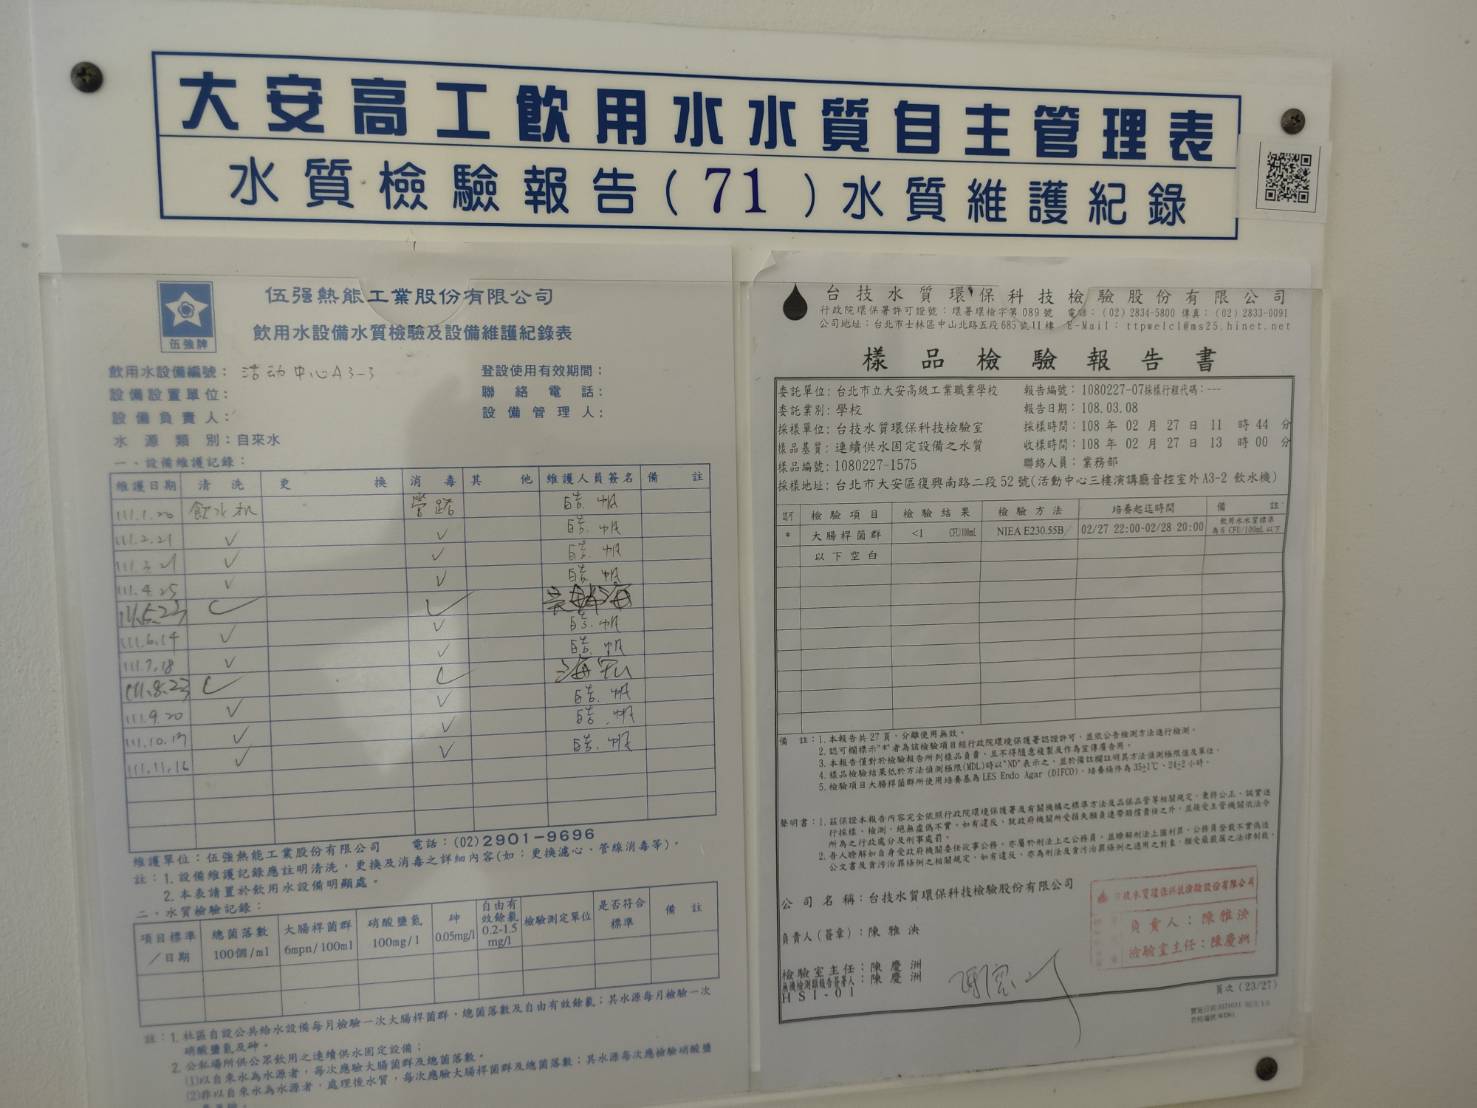 大安高工飲用水水質自主管理表
水質檢驗報告(71)水質維護紀錄
伍强熱能工業股份有限公司
伍強牌
飲用水設備水質檢驗及設備維護紀錄表
飲用水設備編號：活动中心A3-3
登設使用有效期間：
設備設置單位：
聯絡電話：
設備負責人：
設備管理人：
水源類別：自來水
一、設備維護記錄：
維護日期 清洗 更換 消毒 其他 維護人員簽名 備註
111.1.20 飲水机 管路
111.2.21 ✓ ✓
111.3.21 ✓ ✓
111.4.25 ✓ ✓
111.5.23 ✓ ✓
111.6.14 ✓ ✓
111.7.18 ✓ ✓
111.8.23 ✓ ✓
111.9.20 ✓ ✓
111.10.19 ✓ ✓
111.11.16 ✓ ✓
維護單位：伍強熱能工業股份有限公司 電話：(02)2901-9696
註：1.設備維護記錄應註明清洗，更換及消毒之詳細內容(如：更換濾心、管線消毒等)。
2.本表請置於飲用水設備明顯處。
二、水質檢驗記錄：
項目標準／日期 總菌落數 100個/ml 大腸桿菌群 6mpn/100ml 硝酸鹽氮 100mg/l 砷 0.05mg/l 自由有效餘氯 0.2-1.5 mg/l 檢驗測定單位 是否符合標準 備註
註：1.社區自設公共給水設備每月檢驗一次大腸桿菌群，總菌落數及自由有效餘氯；其水源每月檢驗一次
硝酸鹽氮及砷。
2.公私場所供公眾飲用之連續供水固定設備：
(1)以自來水為水源者，每次應驗大腸桿菌群及總菌落數。
(2)非以自來水為水源者，處理後水質，每次應驗大腸桿菌群及總菌落數；其水源每次應檢驗硝酸鹽
台技水質環保科技檢驗股份有限公司
行政院環保署許可證號：環署環檢字第089號 電話：(02)2834-5800 傳真：(02)2833-0091
公司地址：台北市士林區中山北路五段685號11樓 E-Mail：ttpwelcl@ms25.hinet.net
樣品檢驗報告書
委託單位：台北市立大安高級工業職業學校 報告編號：1080227-07採樣行程代碼：---
委託業別：學校 報告日期：108.03.08
採樣單位：台技水質環保科技檢驗室 採樣時間：108 年 02 月 27 日 11 時 44 分
樣品基質：連續供水固定設備之水質 收樣時間：108 年 02 月 27 日 13 時 00 分
樣品編號：1080227-1575 聯絡人員：業務部
採樣地址：台北市大安區復興南路二段52號(活動中心三樓演講廳音控室外A3-2 飲水機)
認可 檢驗項目 檢驗結果 檢驗方法 培養起迄時間 備註
* 大腸桿菌群 <1 CFU/100mL NIEA E230.55B 02/27 22:00-02/28 20:00 飲用水水質標準為6 CFU/100mL以下
以下空白
備註：1.本報告共27頁，分離使用無效。
2.認可欄標示"*"者為該檢驗項目經行政院環境保護署認證許可，並依公告檢測方法進行檢測。
3.本報告僅對於檢驗報告所列樣品負責，且不得隨意複製及作為宣傳廣告用。
4.樣品檢驗結果低於方法偵測極限(MDL)時以"ND"表示之，並於備註欄註明其方法偵測極限值及單位。
5.檢驗項目大腸桿菌群所使用培養基為LES Endo Agar (DIFCO)，培養條件為35±1℃、24±2小時。
聲明書：1.茲保證本報告內容完全依照行政院環境保護署及有關機構之標準方法及品保品管等相關規定，秉持公正、誠實進
行採樣、檢測，絕無虛偽不實，如有違反，就政府機關所受損失願負連帶賠償責任之外，並接受主管機關依法令
所為之行政處分及刑事處罰。
2.吾人瞭解如自身受政府機關委任從事公務，亦屬於刑法上之公務員，並瞭解刑法上圖利罪、公務員登載不實偽造
公文書及貪污治罪條例之相關規定，如有違反，亦為刑法及貪污治罪條例之適用之對象，願受最嚴厲之法律制裁。
公司名稱：台技水質環保科技檢驗股份有限公司
負責人(簽章)：陳雅泱
檢驗室主任：陳慶洲
無機檢測類報告簽署人：陳慶洲
HSI-01
負責人：陳雅泱
檢驗室主任：陳慶洲
頁次(23/27)